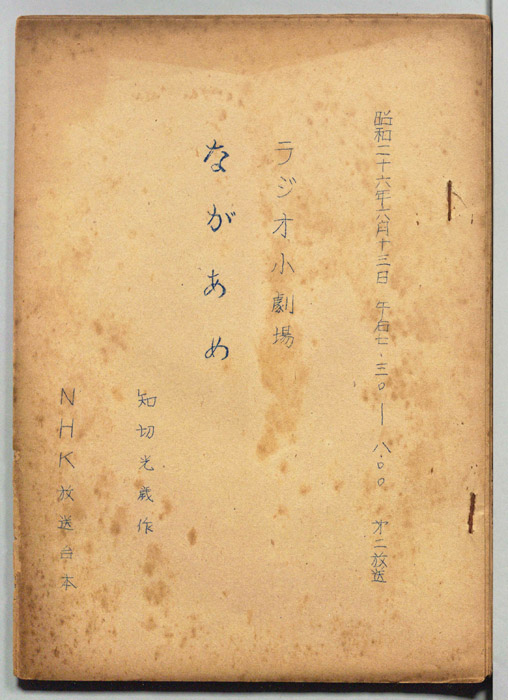 昭和二十六年六月十三日 午后七・三〇ー八・〇〇 才二放送
ラジオ小劇場
ながあめ
知切光歳作
NHK放送台本